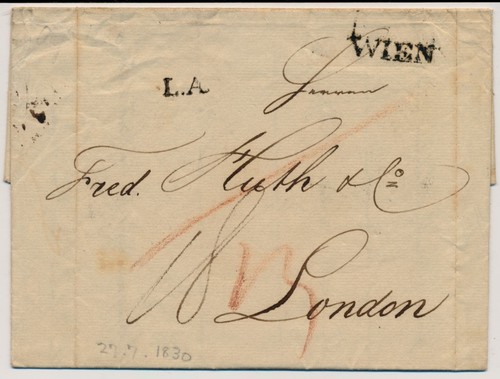 WIEN
L.A
Herren
Fred. Huth & Co
18
London
27.7.1830